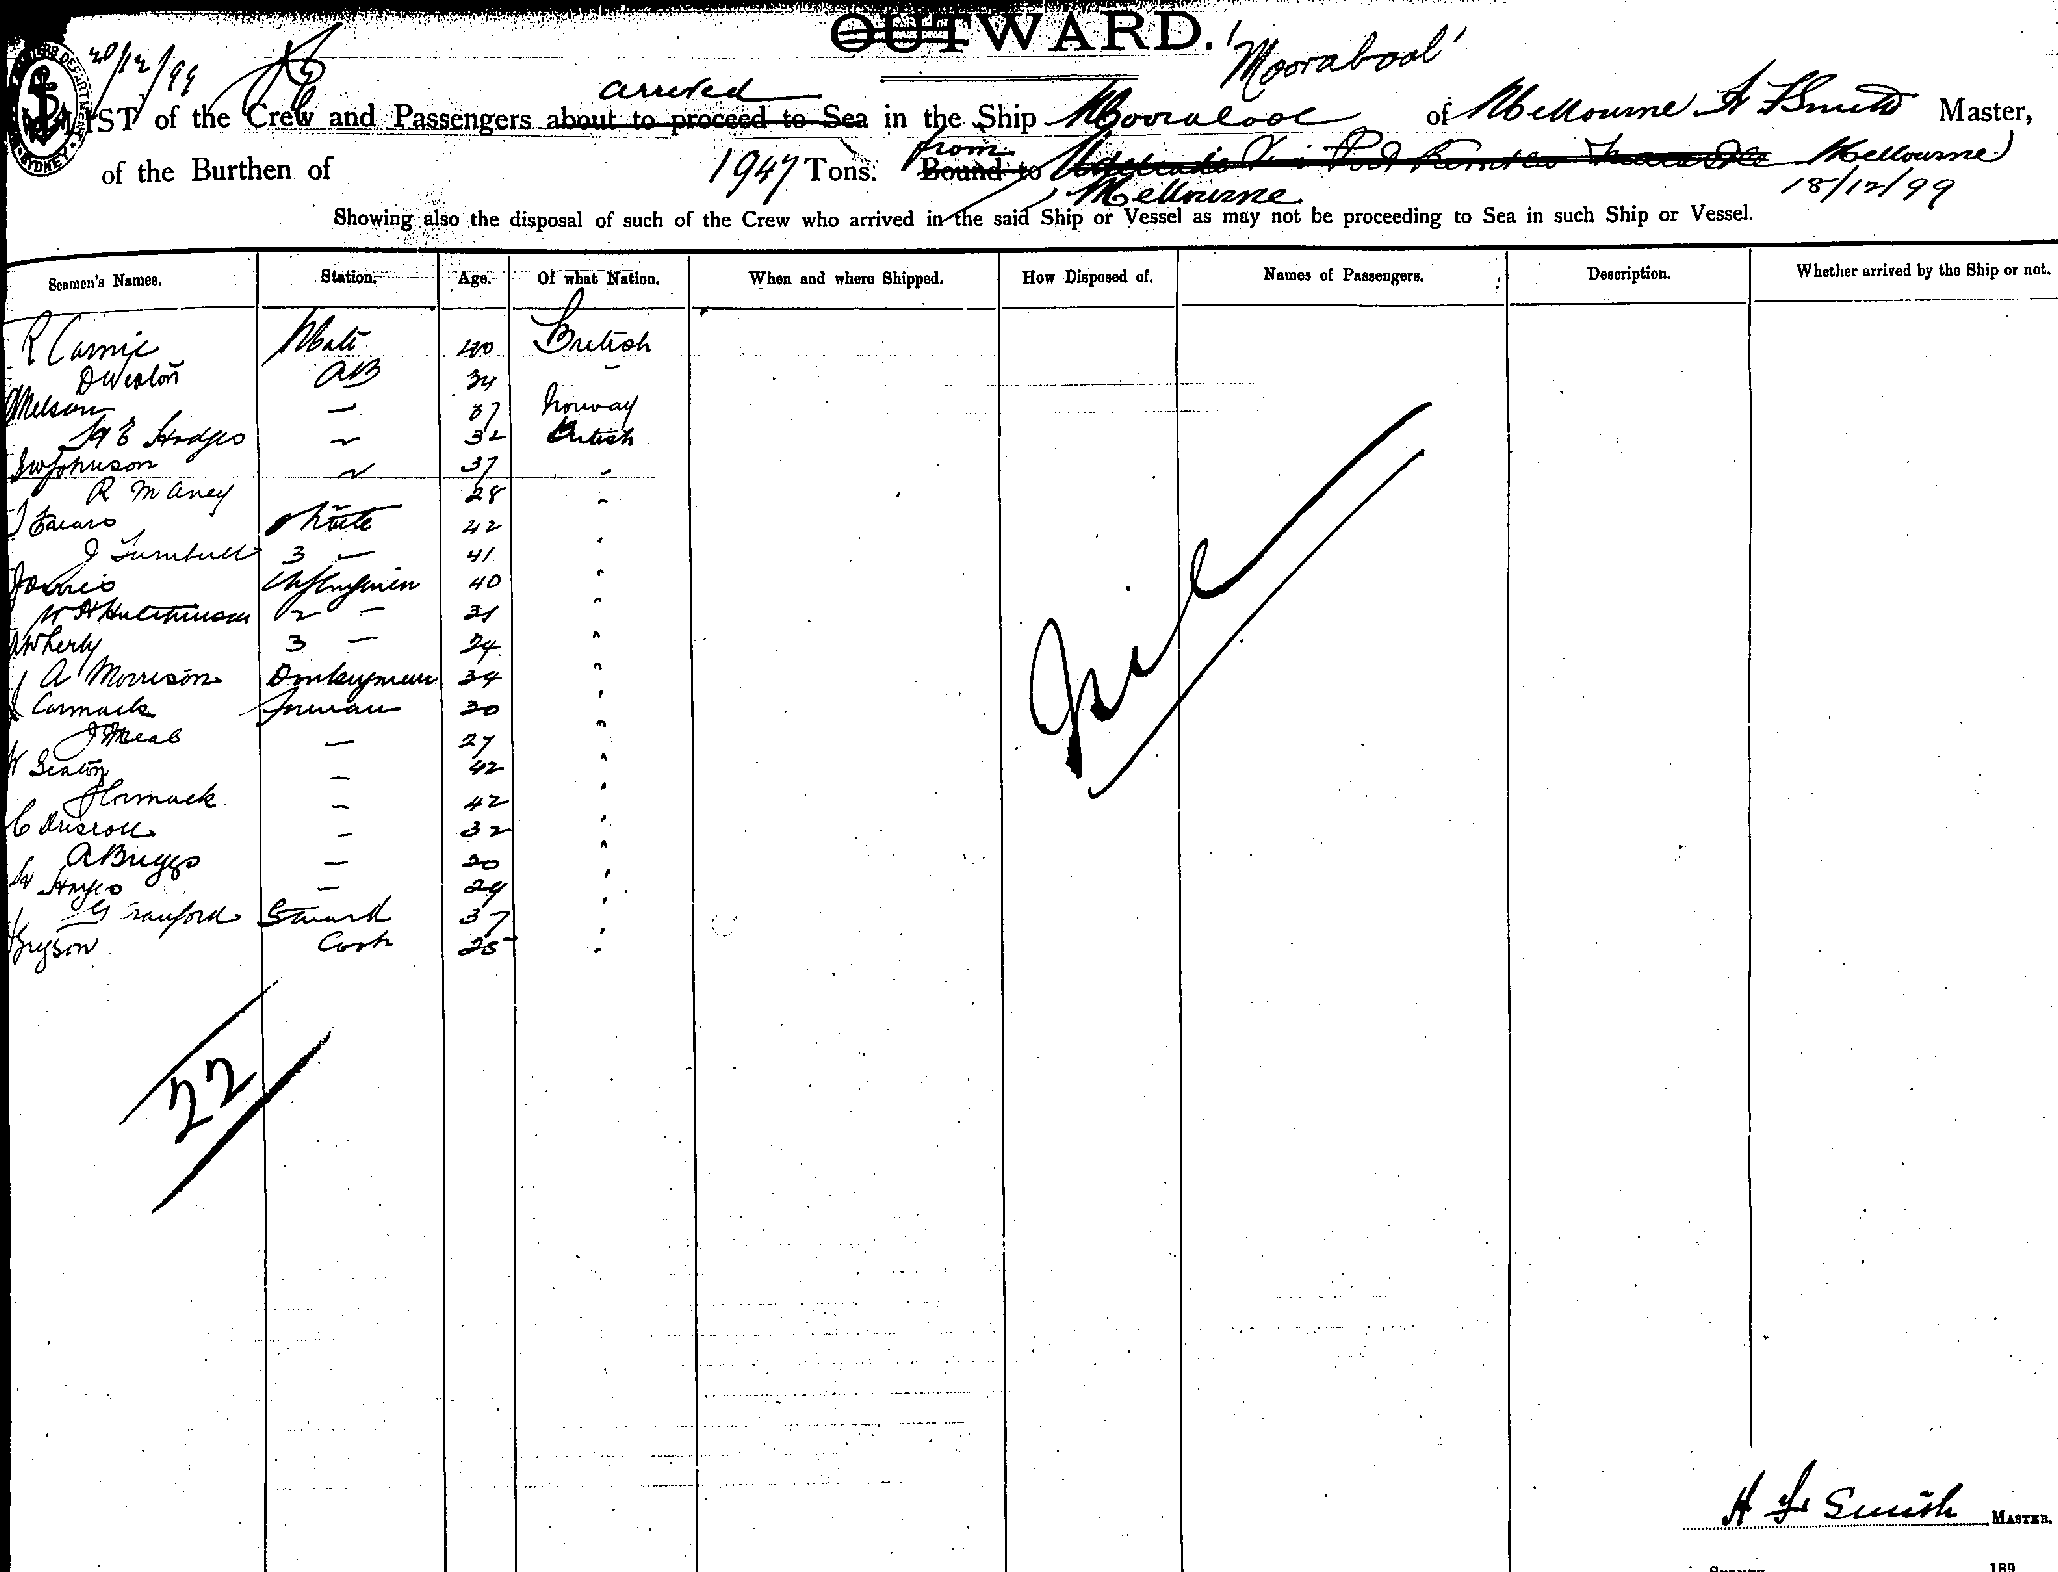 OUTWARD.
'Moorabool'
20/12/99
arrived
LIST of the Crew and Passengers about to proceed to Sea in the Ship Moorabool of Melbourne H F Smith Master,
from
of the Burthen of 1947 Tons. Bound to Adelaide Via Port Kembla Newcastle Melbourne
Melbourne 18/12/99
Showing also the disposal of such of the Crew who arrived in the said Ship or Vessel as may not be proceeding to Sea in such Ship or Vessel.
Seamen's Names. Station. Age. Of what Nation. When and where Shipped. How Disposed of. Names of Passengers. Description. Whether arrived by the Ship or not.
R Carnie Mate 40 British
D Weston AB 34
Nelson — 37 Norway
E Hodges 32 British
Johnson 37 "
R Maney 28 "
2 Mate 42
J Turnbull 3 — 41 "
40 "
W H Hutchinson 2 — 31 "
Wherly 3 — 24 "
A Morrison Donkeyman 39 "
Cormack Fireman 30 "
— 27 "
W Seaton — 42 "
Cormack — 42 "
C Driscoll — 32 "
A Briggs — 30 "
— 29 "
G Cranford Steward 37 "
Bryson Cook 25 "
Nil
22
H F Smith MASTER.
SYDNEY 189